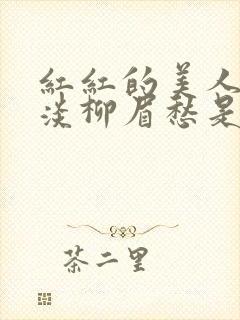 红红的美人
淡柳眉愁是
茶二里